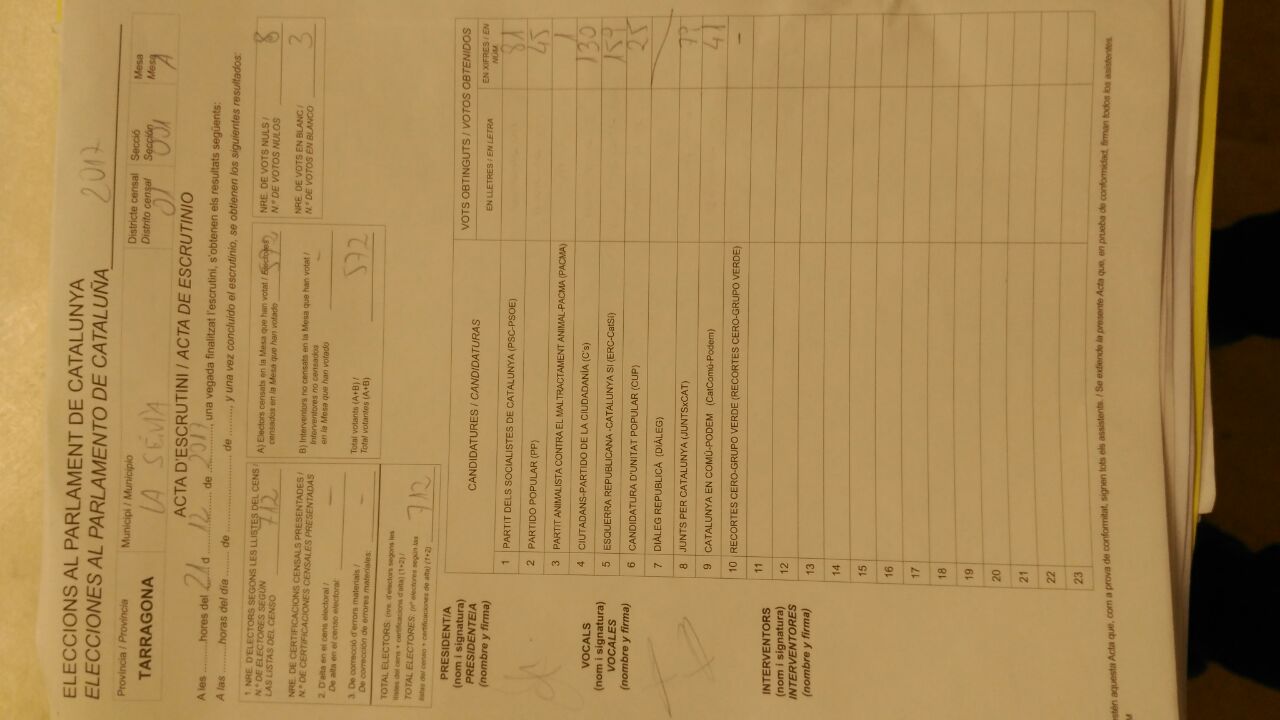 ELECCIONS AL PARLAMENT DE CATALUNYA
ELECCIONES AL PARLAMENTO DE CATALUÑA 2017
Província / Provincia
TARRAGONA
Municipi / Municipio
LA SÉNIA
Districte censal
Distrito censal
01
Secció
Sección
001
Mesa
Mesa
A
ACTA D'ESCRUTINI / ACTA DE ESCRUTINIO
A les ......... hores del 21 d 12 de 2017, una vegada finalitzat l'escrutini, s'obtenen els resultats següents:
A las .........horas del día ......... de ......... de ........ y una vez concluido el escrutinio, se obtienen los siguientes resultados:
1. NRE. D'ELECTORS SEGONS LES LLISTES DEL CENS /
N.º DE ELECTORES SEGÚN
LAS LISTAS DEL CENSO 712
NRE. DE CERTIFICACIONS CENSALS PRESENTADES /
N.º CERTIFICACIONES CENSALES PRESENTADAS
2. D'alta en el cens electoral /
De alta en el censo electoral: –
3. De correcció d'errors materials /
De corrección de errores materiales: –
TOTAL ELECTORS: (nre. d'electors segons les
llistes del cens + certificacions d'alta) (1+2) /
TOTAL ELECTORES: (nº electores según las
listas del censo + certificaciones de alta) (1+2) 712
A) Electors censats en la Mesa que han votat / Electores
censados en la Mesa que han votado 572
B) Interventors no censats en la Mesa que han votat /
Interventores no censados
en la Mesa que han votado –
Total votants (A+B) /
Total votantes (A+B) 572
NRE. DE VOTS NULS /
N.º DE VOTOS NULOS 8
NRE. DE VOTS EN BLANC /
N.º DE VOTOS EN BLANCO 3
CANDIDATURES / CANDIDATURAS
VOTS OBTINGUTS / VOTOS OBTENIDOS
EN LLETRES / EN LETRA
EN XIFRES / EN NÚM.
1 PARTIT DELS SOCIALISTES DE CATALUNYA (PSC-PSOE) 81
2 PARTIDO POPULAR (PP) 45
3 PARTIT ANIMALISTA CONTRA EL MALTRACTAMENT ANIMAL-PACMA (PACMA) 1
4 CIUTADANS-PARTIDO DE LA CIUDADANÍA (C's) 130
5 ESQUERRA REPUBLICANA -CATALUNYA SI (ERC-CatSí)
6 CANDIDATURA D'UNITAT POPULAR (CUP) 25
7 DIÀLEG REPUBLICÀ (DIÀLEG)
8 JUNTS PER CATALUNYA (JUNTSxCAT)
9 CATALUNYA EN COMÚ-PODEM (CatComú-Podem) 41
10 RECORTES CERO-GRUPO VERDE (RECORTES CERO-GRUPO VERDE) –
11
12
13
14
15
16
17
18
19
20
21
22
23
PRESIDENT/A
(nom i signatura)
PRESIDENTE/A
(nombre y firma)
VOCALS
(nom i signatura)
VOCALES
(nombre y firma)
INTERVENTORS
(nom i signatura)
INTERVENTORES
(nombre y firma)
estén aquesta Acta que, com a prova de conformitat, signen tots els assistents. / Se extiende la presente Acta que, en prueba de conformidad, firman todos los asistentes.